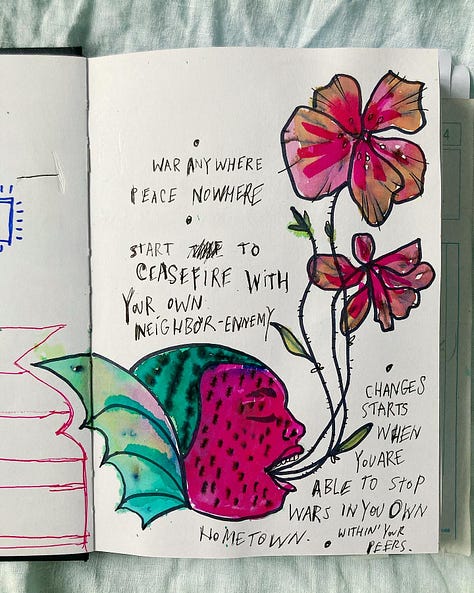 WAR ANYWHERE
PEACE NOWHERE
START TO
CEASEFIRE WITH
YOUR OWN
NEIGHBOR-ENNEMY
CHANGES
STARTS
WHEN
YOU ARE
ABLE TO STOP
WARS IN YOU OWN
HOMETOWN.
WITHIN' YOUR
PEERS.
4